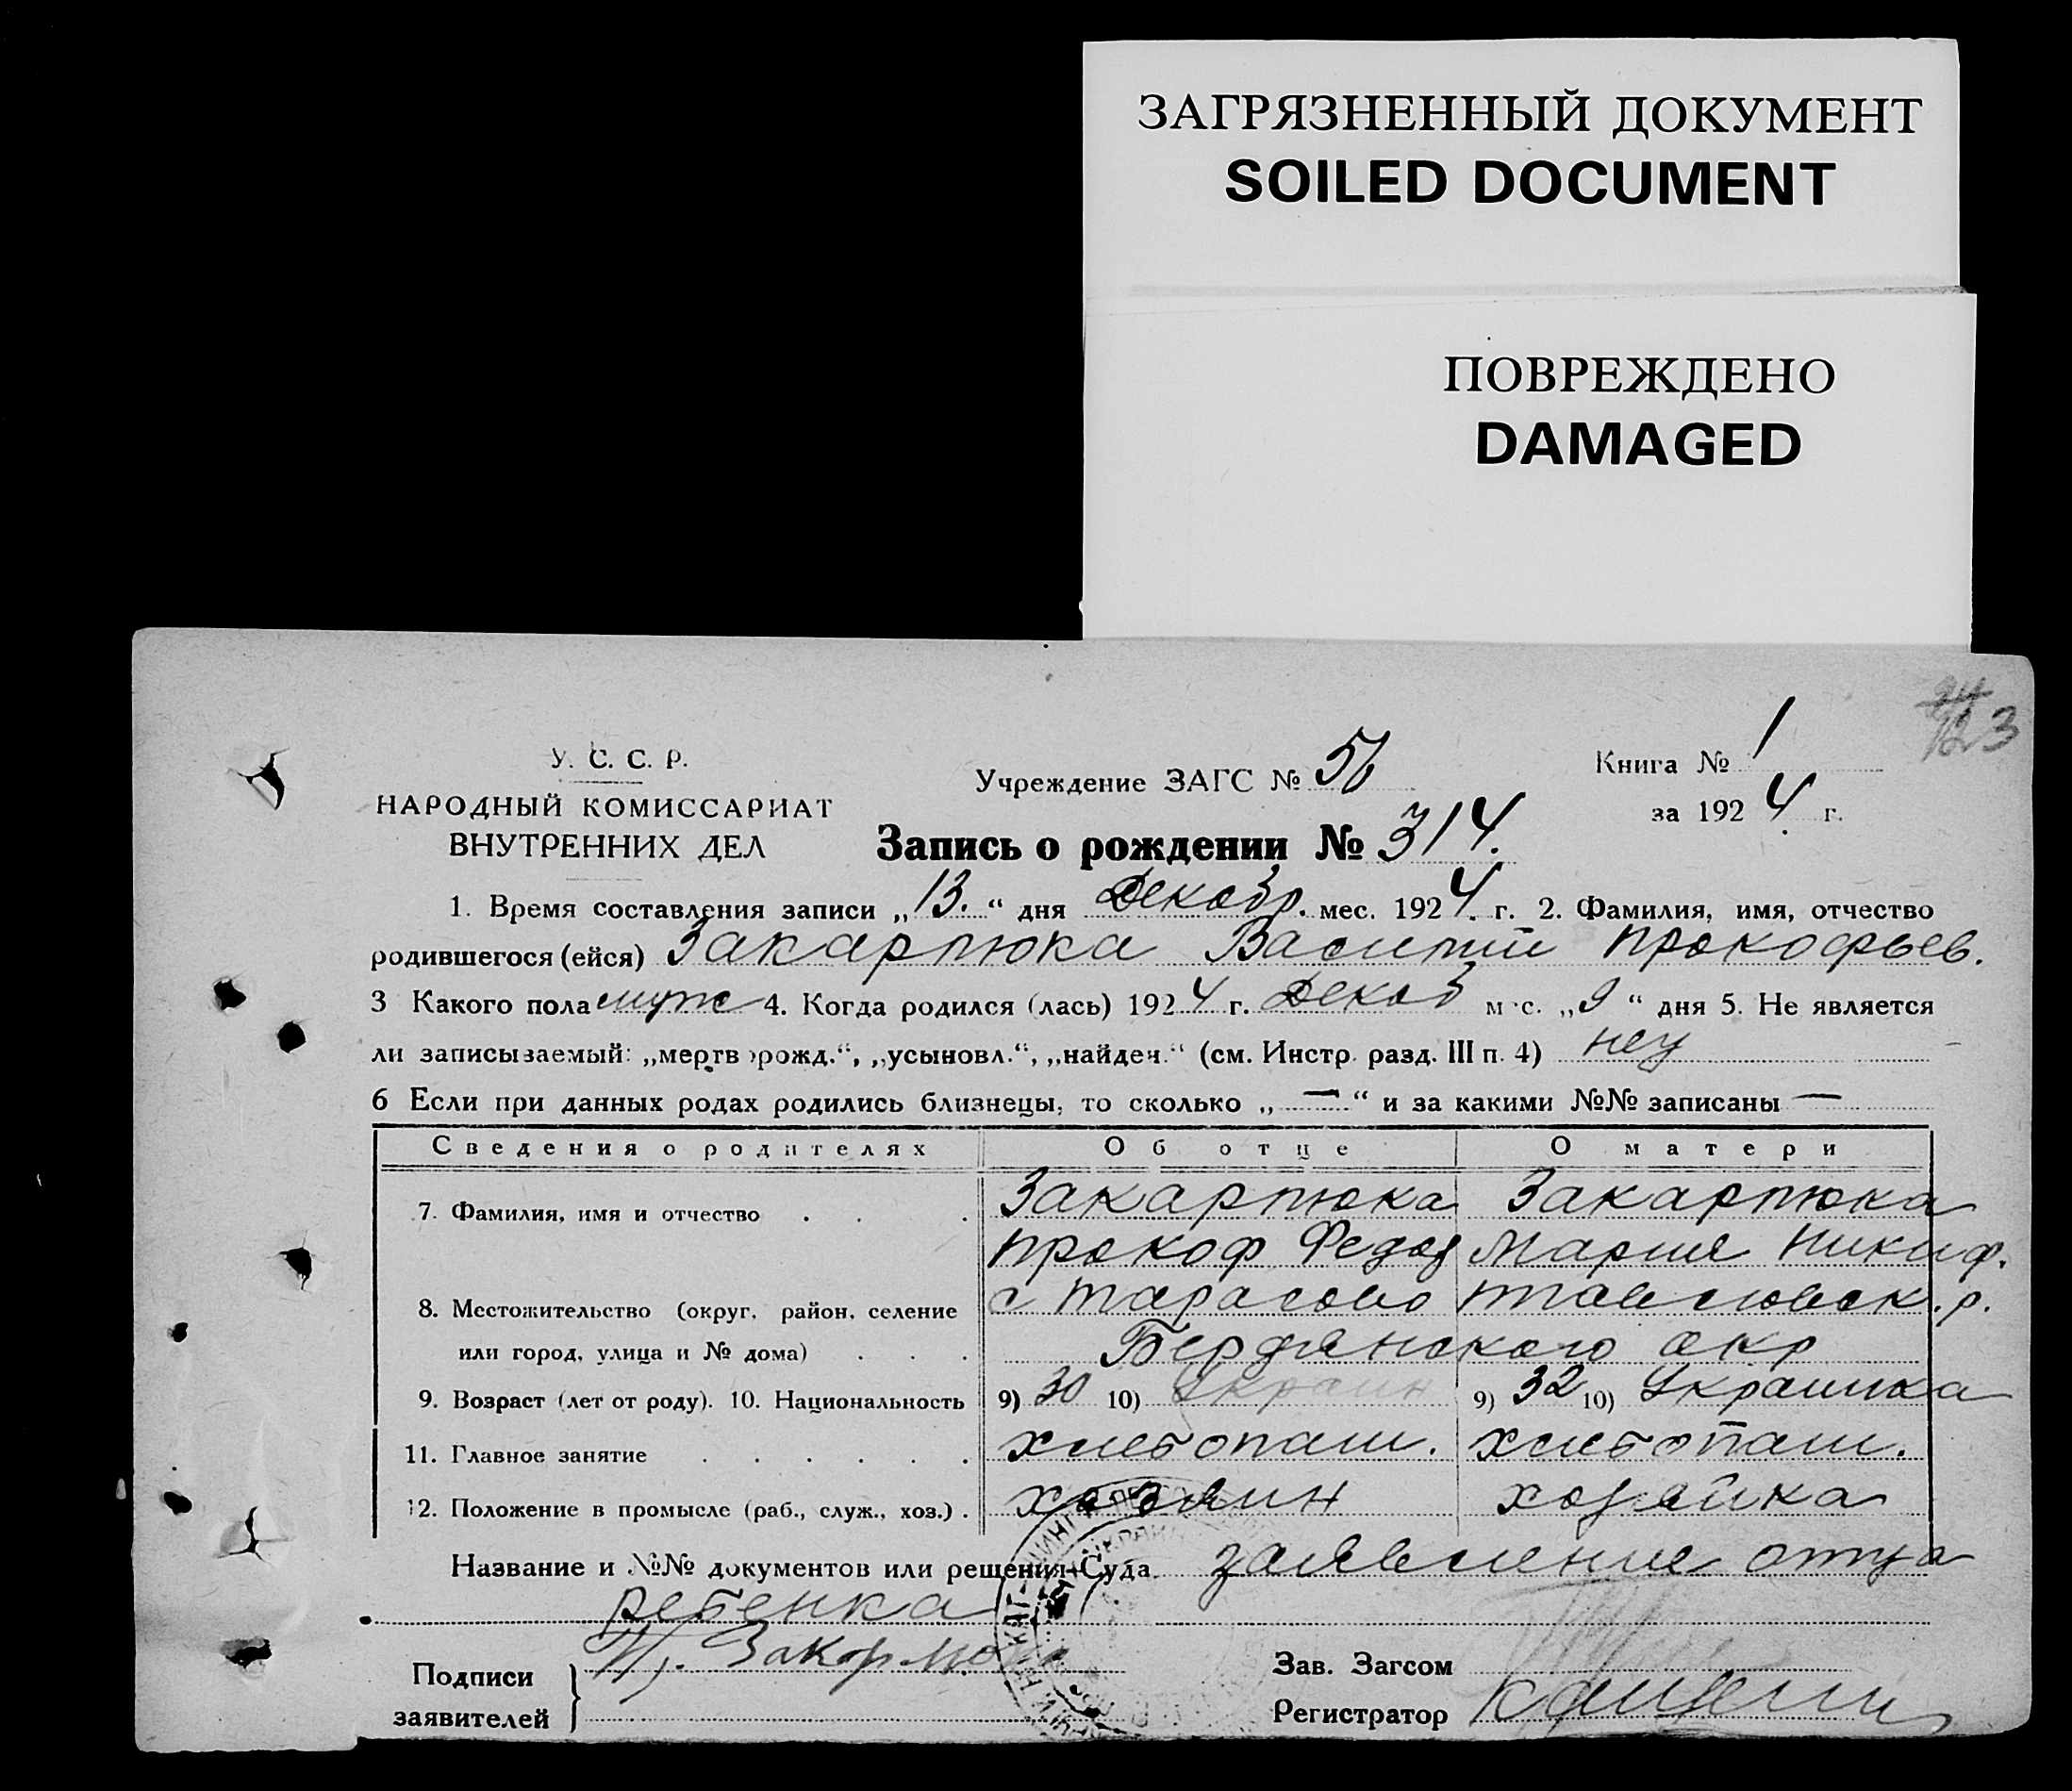 ЗАГРЯЗНЕННЫЙ ДОКУМЕНТ
SOILED DOCUMENT
ПОВРЕЖДЕНО
DAMAGED
123
У. С. С. Р.
НАРОДНЫЙ КОМИССАРИАТ
ВНУТРЕННИХ ДЕЛ
Учреждение ЗАГС № 56
Книга № 1
за 1924 г.
Запись о рождении № 314.
1. Время составления записи „13.“ дня Декабр. мес. 1924. г. 2. Фамилия, имя, отчество
родившегося (ейся) Закарлюка Василий Прокофьев.
3 Какого пола муж 4. Когда родился (лась) 1924 г. Декаб мес. „9“ дня 5. Не является
ли записываемый: „мертворожд.“, „усыновл.“, „найден.“ (см. Инстр. разд. III п. 4) нет
6 Если при данных родах родились близнецы, то сколько „—“ и за какими №№ записаны —
Сведения о родителях Об отце О матери
7. Фамилия, имя и отчество Закарлюка Закарлюка
Прокоф Федор Мария Никиф.
8. Местожительство (округ, район, селение с Тарасово .р.
или город, улица и № дома) Бердянского окр
9. Возраст (лет от роду). 10. Национальность 9) 30 10) Украин 9) 32 10) Украинка
11. Главное занятие хлебопаш. хлебопаш.
12. Положение в промысле (раб., служ., хоз.) . хозяин хозяйка
Название и №№ документов или решения Суда заявление отца
ребенка
Подписи
заявителей
Зав. Загсом
Регистратор